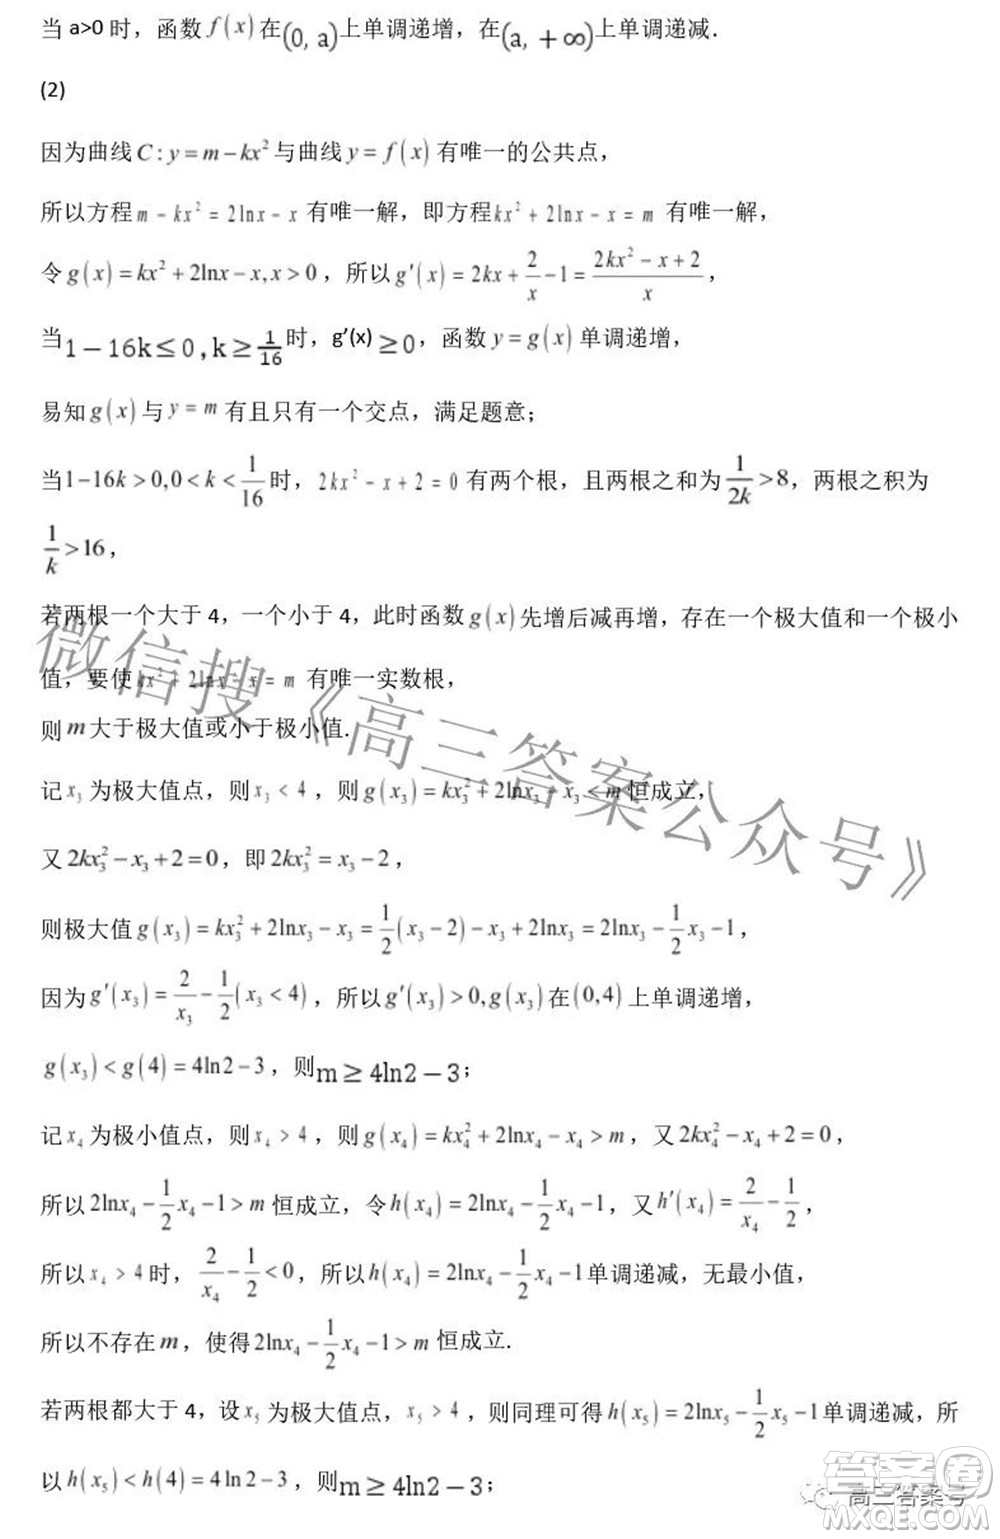 当 a>0 时，函数 f(x) 在(0, a)上单调递增，在(a, +∞)上单调递减.
(2)
因为曲线 C : y = m − kx² 与曲线 y = f(x) 有唯一的公共点，
所以方程 m − kx² = 2lnx − x 有唯一解，即方程 kx² + 2lnx − x = m 有唯一解，
令 g(x) = kx² + 2lnx − x, x > 0 ，所以 g′(x) = 2kx + 2/x − 1 = (2kx² − x + 2)/x ，
当 1 − 16k ≤ 0 , k ≥ 1/16 时，g′(x) ≥ 0 ，函数 y = g(x) 单调递增，
易知 g(x) 与 y = m 有且只有一个交点，满足题意；
当 1−16k > 0, 0 < k < 1/16 时， 2kx² − x + 2 = 0 有两个根，且两根之和为 1/2k > 8，两根之积为
1/k > 16 ，
若两根一个大于 4，一个小于 4，此时函数 g(x) 先增后减再增，存在一个极大值和一个极小
值，要使 kx² + 2lnx − x = m 有唯一实数根，
则 m 大于极大值或小于极小值.
记 x₃ 为极大值点，则 x₃ < 4 ，则 g(x₃) = kx₃² + 2lnx₃ − x₃ < m 恒成立，
又 2kx₃² − x₃ + 2 = 0，即 2kx₃² = x₃ − 2 ，
则极大值 g(x₃) = kx₃² + 2lnx₃ − x₃ = 1/2(x₃ − 2) − x₃ + 2lnx₃ = 2lnx₃ − 1/2x₃ − 1 ，
因为 g′(x₃) = 2/x₃ − 1/2 (x₃ < 4) ，所以 g′(x₃) > 0, g(x₃) 在 (0,4) 上单调递增，
g(x₃) < g(4) = 4ln2 − 3 ，则 m ≥ 4ln2 − 3；
记 x₄ 为极小值点，则 x₄ > 4 ，则 g(x₄) = kx₄² + 2lnx₄ − x₄ > m ，又 2kx₄² − x₄ + 2 = 0 ，
所以 2lnx₄ − 1/2x₄ − 1 > m 恒成立，令 h(x₄) = 2lnx₄ − 1/2x₄ − 1，又 h′(x₄) = 2/x₄ − 1/2 ，
所以 x₄ > 4 时， 2/x₄ − 1/2 < 0 ，所以 h(x₄) = 2lnx₄ − 1/2x₄ − 1 单调递减，无最小值，
所以不存在 m ，使得 2lnx₄ − 1/2x₄ − 1 > m 恒成立.
若两根都大于 4，设 x₅ 为极大值点，x₅ > 4 ，则同理可得 h(x₅) = 2lnx₅ − 1/2x₅ − 1 单调递减，所
以 h(x₅) < h(4) = 4 ln 2 − 3 ，则 m ≥ 4ln2 − 3；
微信搜《高三答案公众号》
高三答案号
答案圈
MXQE.COM